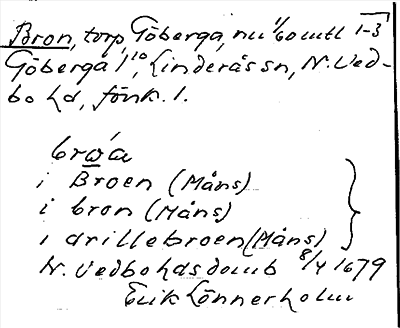 Bron, torp Göberga, nu 1/60 mtl 1-3
Göberga 1¹⁰, Linderås sn, N. Ved-
bo hd, Jönk. l.
bro̱´a
i Broen (Måns)
i bron (Måns)
i drillebroen (Måns)
N. Vedbohdsdomb 8/4 1679
Erik Lönnerholm